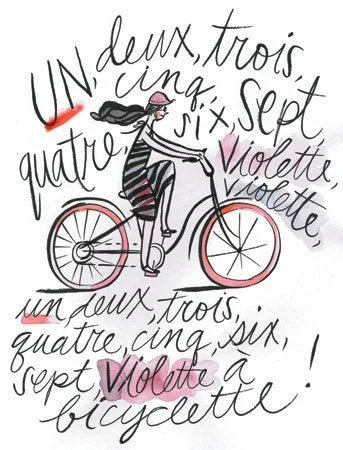 UN, deux, trois,
quatre, cinq, six, sept
Violette,
violette,
un deux, trois,
quatre, cinq, six,
sept, Violette à
bicyclette!